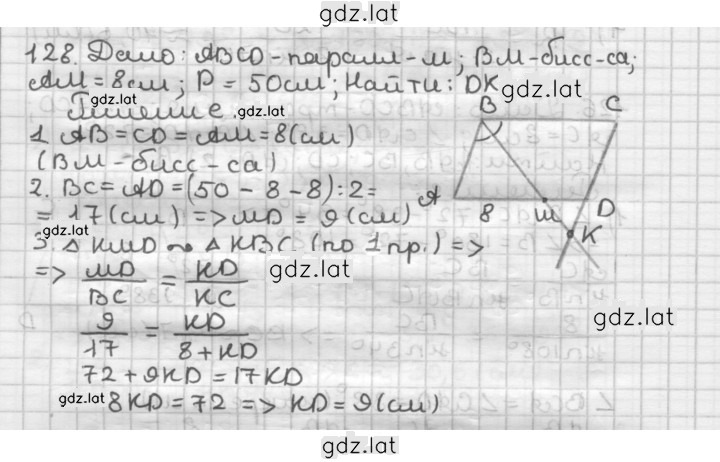 gdz.lat
128. Дано: ABCD-паралл-м; BM-бисс-са;
AM = 8см; P = 50см; Найти: DK
gdz.lat
gdz.lat
Решение
gdz.lat
B
C
1. AB = CD = AM = 8(см)
(BM - бисс-са)
2. BC = AD = (50 - 8 - 8) : 2 =
= 17(см) => MD = 9(см)
A
8
M
D
K
3. △ KMD ~ △ KBC (по 1 пр.) =>
gdz.lat
=> MD/BC = KD/KC
gdz.lat
9/17 = KD/8 + KD
72 + 9KD = 17KD
gdz.lat
8KD = 72 => KD = 9(см)
gdz.lat